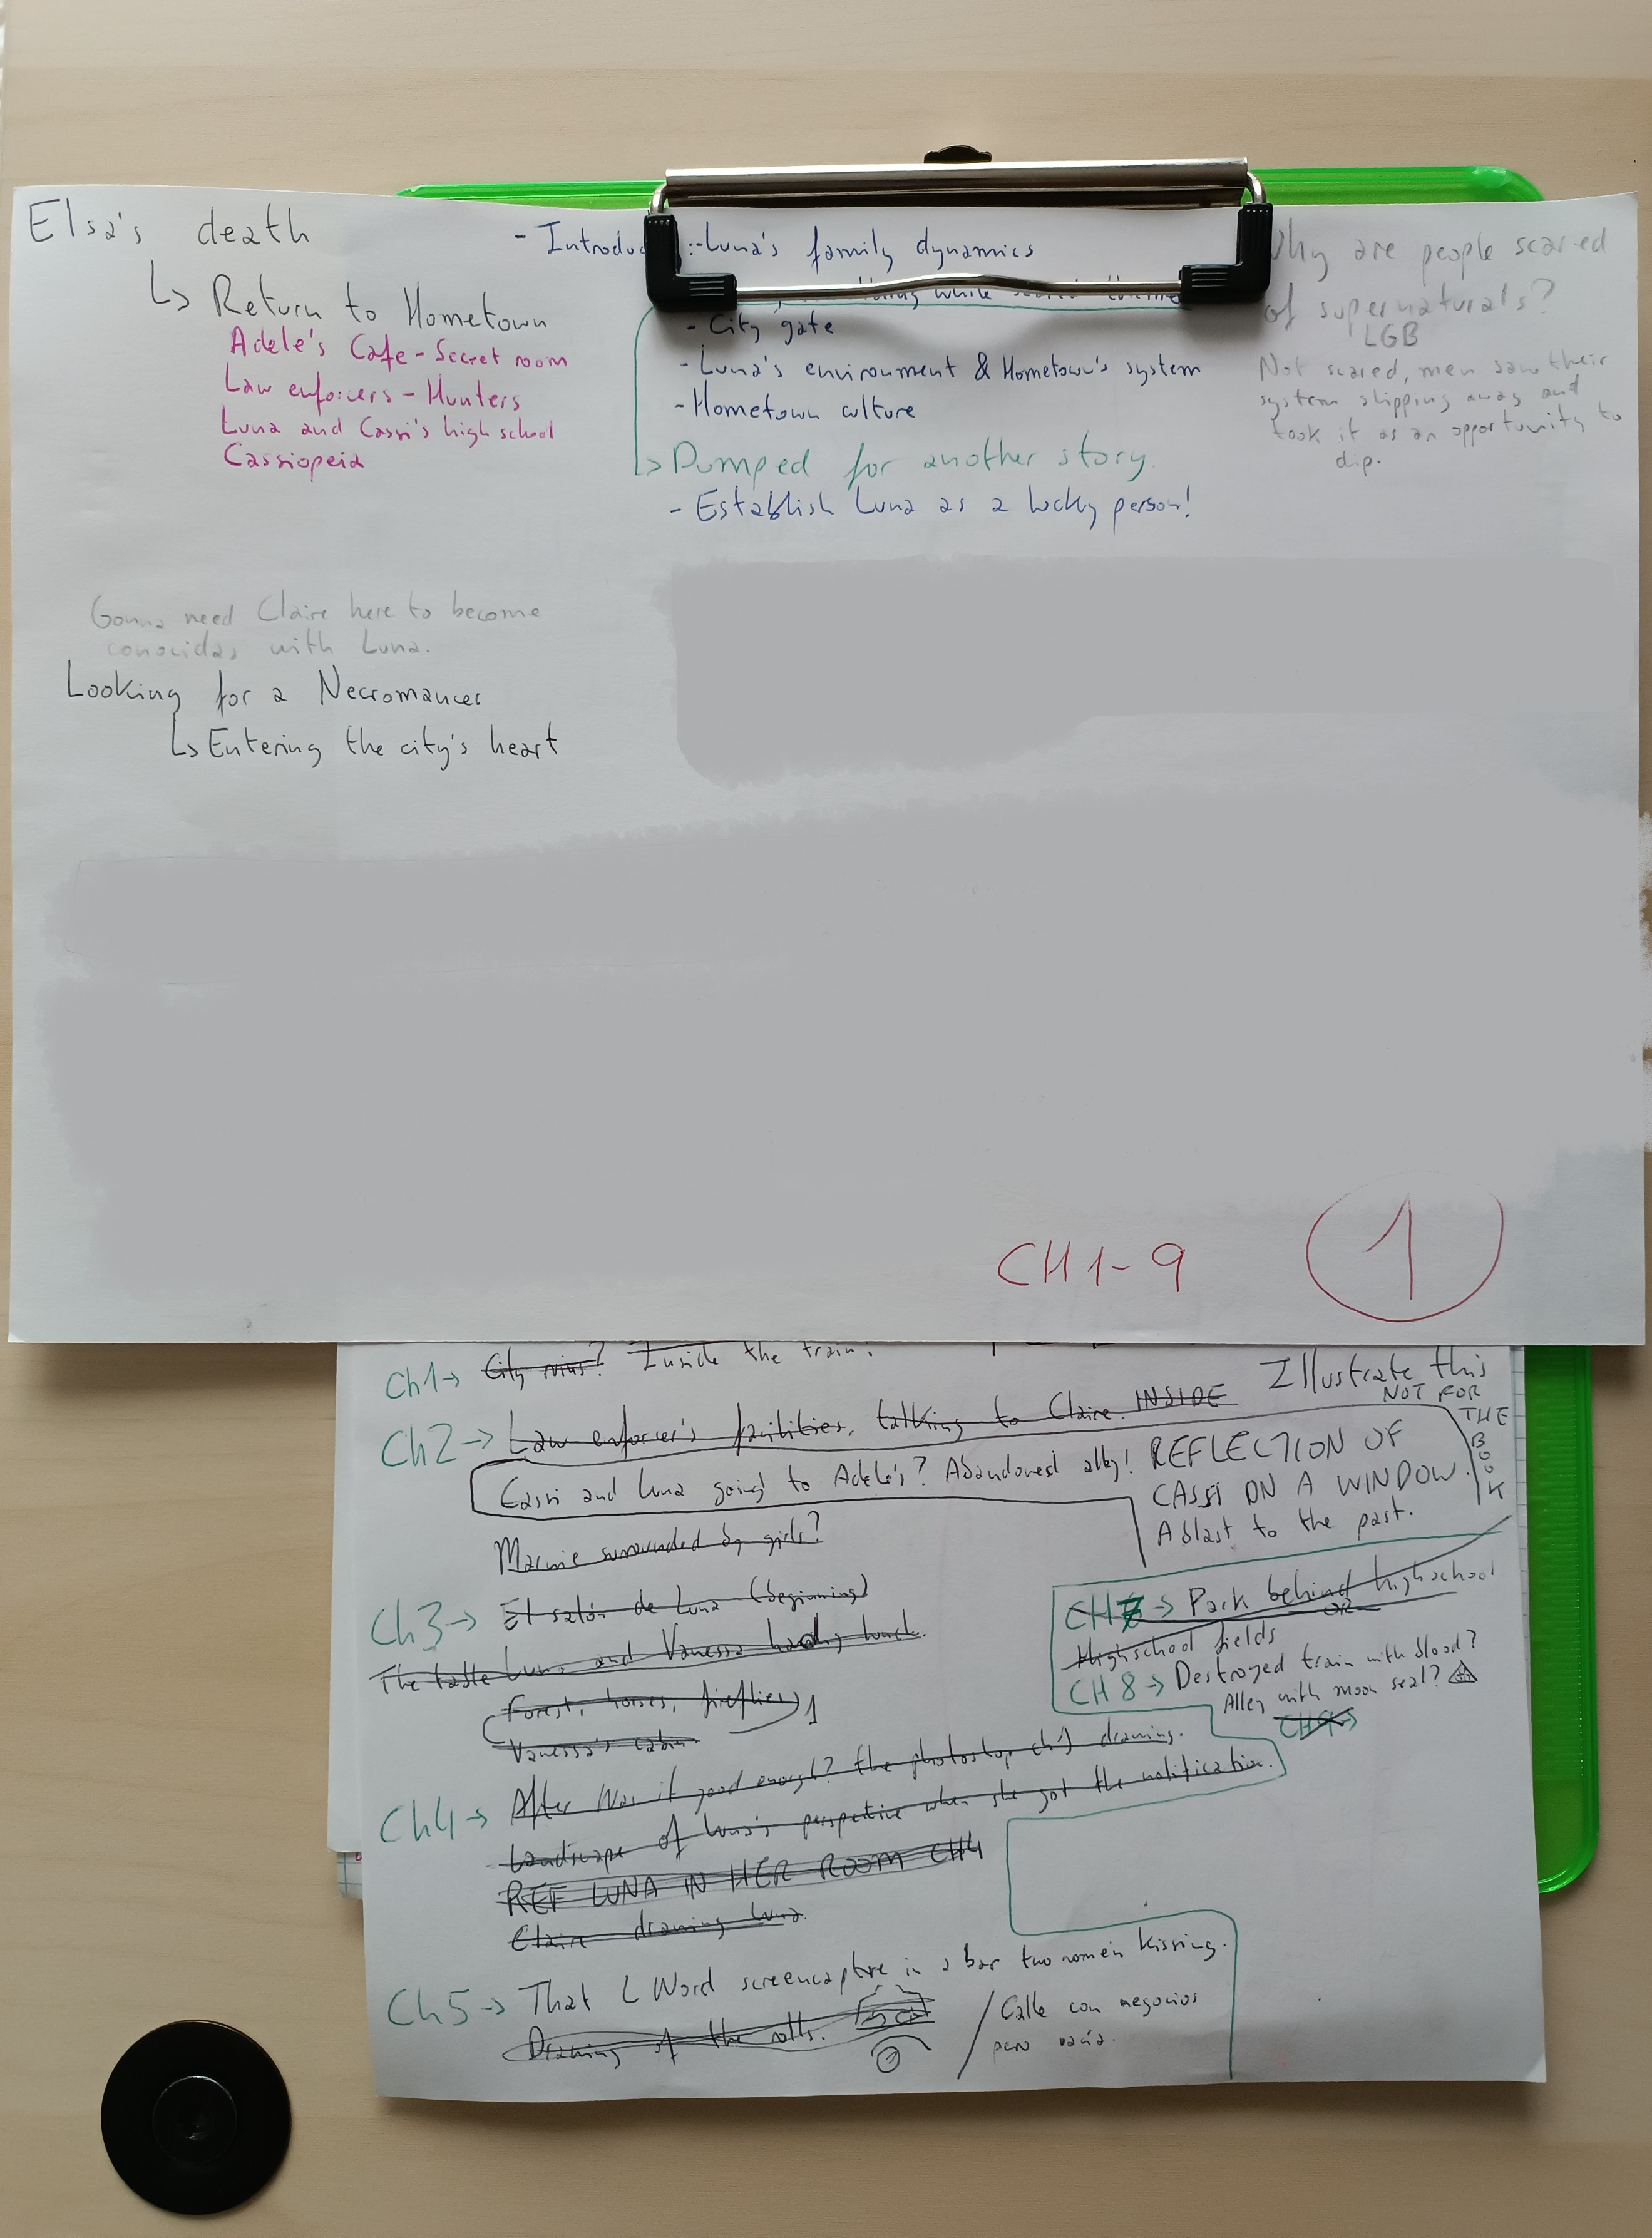 Elsa's death
↳ Return to Hometown
Adele's Cafe - Secret room
Law enforcers - Hunters
Luna and Cassi's high school
Cassiopeia
- Introduc :-Luna's family dynamics
while
- City gate
- Luna's environment & Hometown's system
- Hometown culture
↳ Dumped for another story.
- Establish Luna as a lucky person!
Why are people scared
of supernaturals?
LGB
Not scared, men saw their
system slipping away and
took it as an opportunity to
dip.
Gonna need Claire here to become
conocidas with Luna.
Looking for a Necromancer
↳ Entering the city's heart
CH 1-9
1
Ch1→ City ruins? Inside the train.
Illustrate this
NOT FOR
THE
BOOK
Ch2→ Law enforcer's facilities, talking to Claire. INSIDE
Cassi and Luna going to Adele's? Abandoned alley!
REFLECTION OF
CASSI ON A WINDOW.
A blast to the past.
Marnie surrounded by girls?
Ch3→ El salón de Luna (beginning)
The table Luna and Vanessa lunch.
Forest, horses, fireflies 1
Vanessa's cabin
CH7→ Park behind highschool
OR
Highschool fields
CH 8→ Destroyed train with blood?
Alley with moon seal?
CH9→
Ch4→ After Was it good enough? the photoshop ch1 drawing.
- Landscape of Luna's perspective when she got the notification.
REF LUNA IN HER ROOM CH4
Claire drawing Luna.
Ch5→ That L Word screencapture in a bar two women kissing.
Drawing of the
/ Calle con negocios
pero vacía.